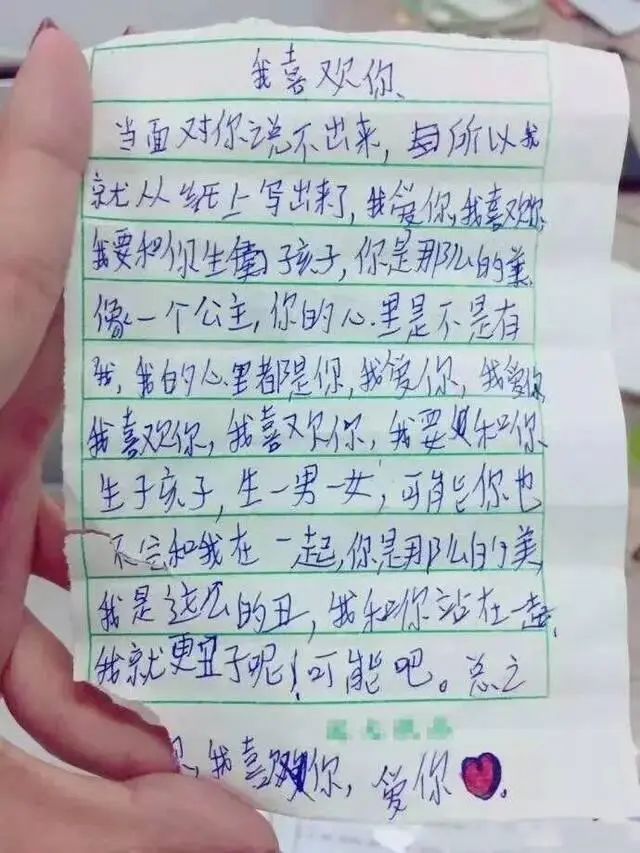 我喜欢你、
当面对你说不出来，所以我
就从纸上写出来了，我爱你，我喜欢你，
我要和你生子孩子，你是那么的美
像一个公主，你的心里是不是有
我，我的心里都是你，我爱你，我爱你
我喜欢你，我喜欢你，我要和你
生子孩子，生一男一女，可能你也
不会和我在一起，你是那么的美
我是这么的丑，我和你站在一起，
我就更丑了呢！可能吧。总之
，我喜欢你，爱你❤.